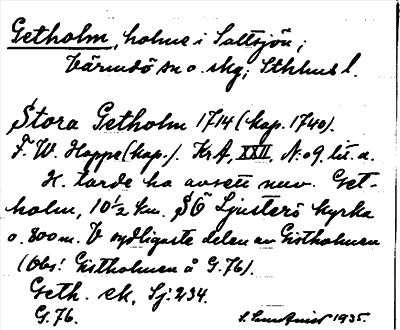 Getholm, holme i Saltsjön;
Värmdö sn o. skg; Sthlms l.
Stora Getholm 1714 (kap. 1740).
F. W. Hoppe (kap.). KrA, XXII, N:o 9. lit. a.
H. torde ha avsett nuv. Get-
holm, 10 1/2 km. SÖ Ljusterö kyrka
o. 800 m. V sydligaste delen av Gistholmen
(Obs! Gistholmen å G. 76).
Geth. ek, Sj: 234.
G. 76.
1935.